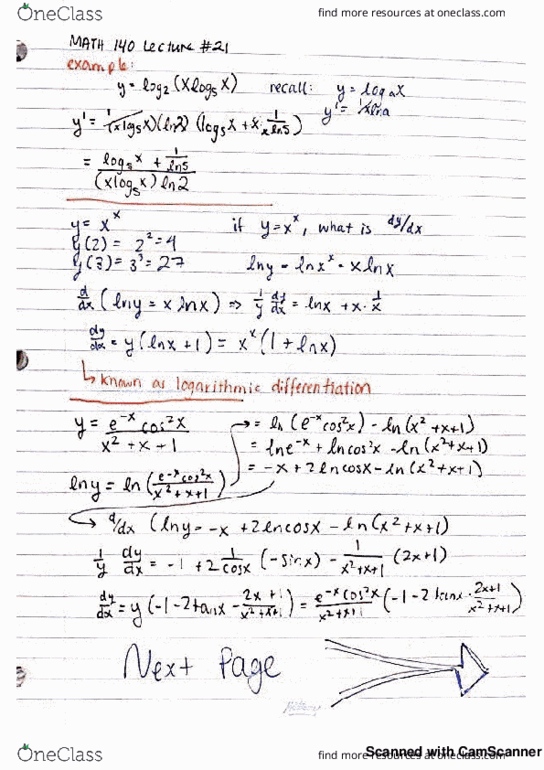 OneClass find more resources at oneclass.com
MATH 140 Lecture #21
example:
y = log₂(xlog₅x) recall: y = logₐx
y' = 1/xlna
y' = 1/(xlog₅x)(ln2) (log₅x + x·1/xln5)
= log₅x + 1/ln5 / (xlog₅x) ln2
y = xˣ if y = xˣ, what is dy/dx
y(2) = 2² = 4
y(3) = 3³ = 27 lny = lnxˣ = xlnx
d/dx (lny = xlnx) ⇒ 1/y dy/dx = lnx + x·1/x
dy/dx = y(lnx+1) = xˣ(1+lnx)
↳ known as logarithmic differentiation
y = e⁻ˣcos²x / x²+x+1 → = ln(e⁻ˣcos²x) - ln(x²+x+1)
= lne⁻ˣ + lncos²x - ln(x²+x+1)
lny = ln(e⁻ˣcos²x / x²+x+1) = -x + 2lncosx - ln(x²+x+1)
→ d/dx (lny = -x + 2lncosx - ln(x²+x+1)
1/y dy/dx = -1 + 2 1/cosx (-sinx) - 1/x²+x+1 (2x+1)
dy/dx = y(-1-2tanx - 2x+1/x²+x+1) = e⁻ˣcos²x/x²+x+1 (-1-2tanx · 2x+1/x²+x+1)
Next Page
OneClass find more resources at oneclass.com
Scanned with CamScanner